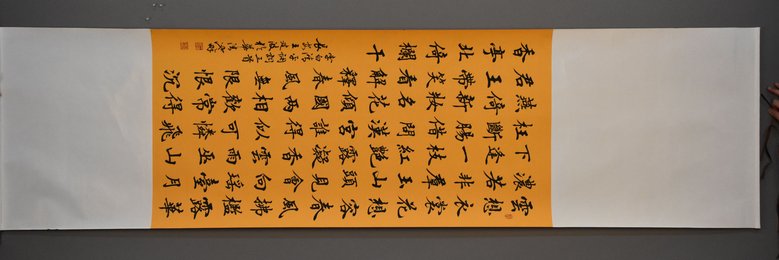 雲想衣裳花想容春風拂檻露華
濃若非群玉山頭見會向瑤臺月
下逢一枝紅艷露凝香雲雨巫山
枉斷腸借問漢宮誰得似可憐飛
燕倚新妝名花傾國兩相歡常得
君王帶笑看解釋春風無限恨沉
香亭北倚欄干